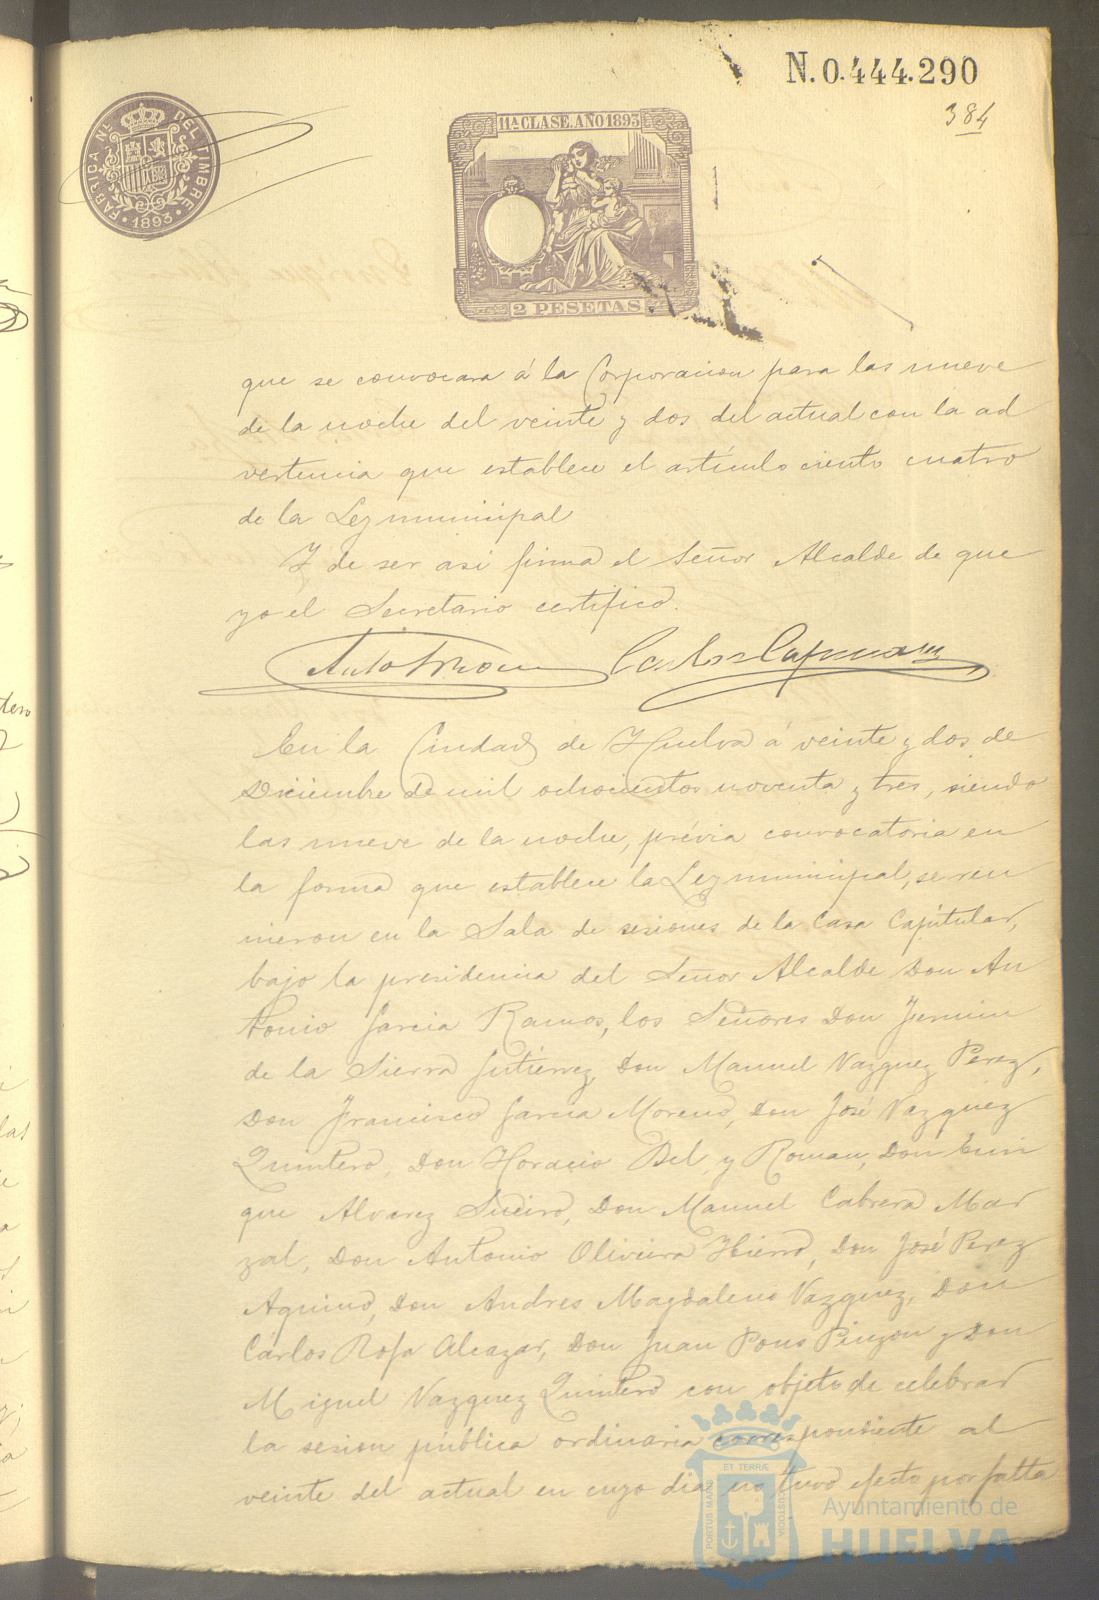 N.0.444.290
384
FABRICA Nl. DEL TIMBRE
1893
11ª CLASE. AÑO 1893
2 PESETAS
que se convocara á la Corporacion para las nueve
de la noche del veinte y dos del actual con la ad
vertencia que establece el artículo ciento cuatro
de la Ley municipal
Y de ser asi firma el Señor Alcalde de que
yo el Secretario certifico.
En la Ciudad de Huelva á veinte y dos de
Diciembre de mil ochocientos noventa y tres, siendo
las nueve de la noche, prévia convocatoria en
la forma que establece la Ley municipal, se reu
nieron en la Sala de sesiones de la Casa Capitular,
bajo la presidencia del Señor Alcalde Don An
tonio Garcia Ramos, los Señores Don Fermin
de la Sierra Gutierrez, Don Manuel Vazquez Perez,
Don Francisco Garcia Moreno, Don José Vazquez
Quintero, Don Horacio Bel y Roman, Don Enri
que Alvarez Sueiro, Don Manuel Cabrera Mar
zal, Don Antonio Oliveira Hierro, Don José Perez
Aquino, Don Andres Magdaleno Vazquez, Don
Cárlos Rofa Alcazar, Don Juan Pons Pinzon y Don
Miguel Vazquez Quintero con objeto de celebrar
la sesion pública ordinaria correspondiente al
veinte del actual en cuyo dia no tuvo efecto por falta
PORTUS MARIS ET TERRÆ CUSTODIA
Ayuntamiento de
HUELVA